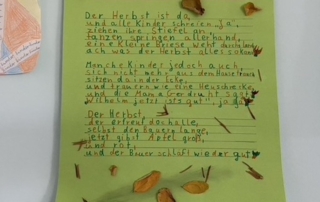 Der Herbst ist da,
und alle Kinder schreien "Ja",
ziehen ihre Stiefel an,
tanzen springen allerhand,
eine kleine Briese weht durchs land
ach was der Herbst alles
Manche Kinder jedoch auch,
sich nicht mehr aus dem Haus
sitzen da in der Ecke,
und trauern wie eine
und die Mama
Wilhelm jetzt ists gut",
Der Herbst,
der erfreut doch alle,
selbst den bauern lange,
jetzt gibt Äpfel groß,
und rot,
und der Bauer schläft wieder gut